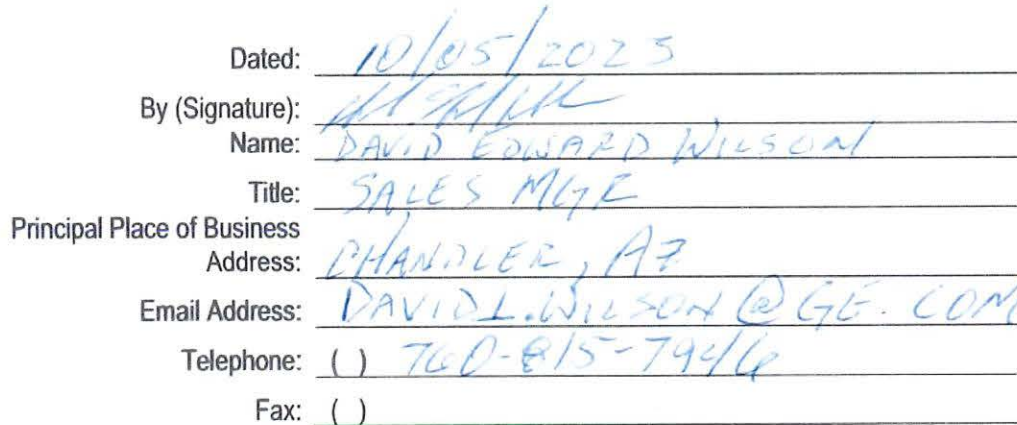 Dated: 10/05/2023
By (Signature):
Name: DAVID EDWARD WILSON
Title: SALES MGR
Principal Place of Business
Address: CHANDLER, AZ
Email Address: DAVIDL.WILSON@GE.COM
Telephone: ( ) 760-815-7946
Fax: ( )